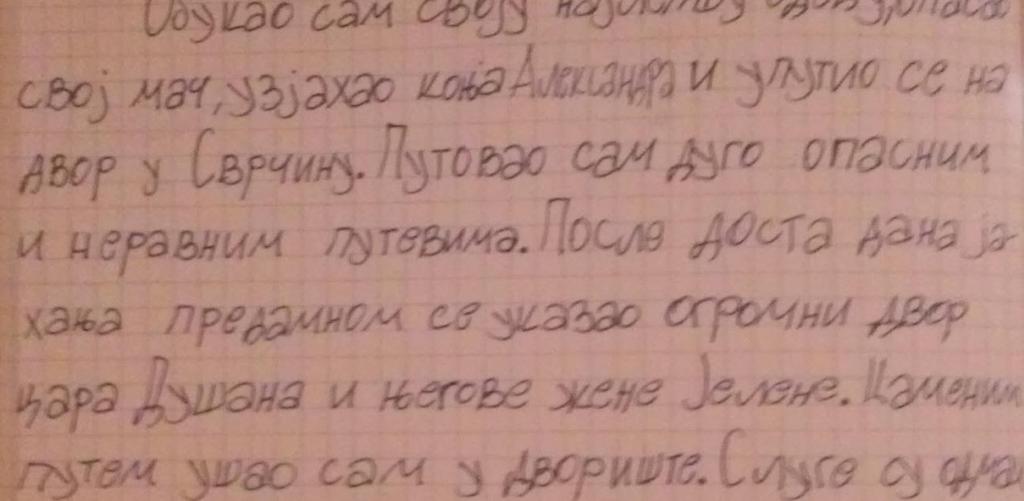 Обукао сам своју најлепшу одећу, опасао
свој мач, узјахао коња Александра и упутио се на
двор у Сврчину. Путовао сам дуго опасним
и неравним путевима. После доста дана ја-
хања предамном се указао огромни двор
цара Душана и његове жене Јелене. Каменим
путем ушао сам у двориште. Слуге су одма